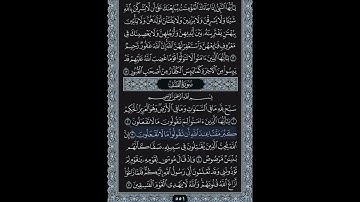 يَٰٓأَيُّهَا ٱلنَّبِيُّ إِذَا جَآءَكَ ٱلْمُؤْمِنَٰتُ يُبَايِعْنَكَ عَلَىٰٓ أَن لَّا يُشْرِكْنَ بِٱللَّهِ
شَيْـًٔا وَلَا يَسْرِقْنَ وَلَا يَزْنِينَ وَلَا يَقْتُلْنَ أَوْلَٰدَهُنَّ وَلَا يَأْتِينَ
بِبُهْتَٰنٍ يَفْتَرِينَهُۥ بَيْنَ أَيْدِيهِنَّ وَأَرْجُلِهِنَّ وَلَا يَعْصِينَكَ فِى
مَعْرُوفٍ فَبَايِعْهُنَّ وَٱسْتَغْفِرْ لَهُنَّ ٱللَّهَ إِنَّ ٱللَّهَ غَفُورٌ رَّحِيمٌ ١٢
يَٰٓأَيُّهَا ٱلَّذِينَ ءَامَنُوا۟ لَا تَتَوَلَّوْا۟ قَوْمًا غَضِبَ ٱللَّهُ عَلَيْهِمْ قَدْ
يَئِسُوا۟ مِنَ ٱلْءَاخِرَةِ كَمَا يَئِسَ ٱلْكُفَّارُ مِنْ أَصْحَٰبِ ٱلْقُبُورِ ١٣
سُورَةُ ٱلصَّفِّ
بِسْمِ ٱللَّهِ ٱلرَّحْمَٰنِ ٱلرَّحِيمِ
سَبَّحَ لِلَّهِ مَا فِى ٱلسَّمَٰوَٰتِ وَمَا فِى ٱلْأَرْضِ وَهُوَ ٱلْعَزِيزُ ٱلْحَكِيمُ
١ يَٰٓأَيُّهَا ٱلَّذِينَ ءَامَنُوا۟ لِمَ تَقُولُونَ مَا لَا تَفْعَلُونَ ٢
كَبُرَ مَقْتًا عِندَ ٱللَّهِ أَن تَقُولُوا۟ مَا لَا تَفْعَلُونَ ٣
إِنَّ ٱللَّهَ يُحِبُّ ٱلَّذِينَ يُقَٰتِلُونَ فِى سَبِيلِهِۦ صَفًّا كَأَنَّهُم
بُنْيَٰنٌ مَّرْصُوصٌ ٤ وَإِذْ قَالَ مُوسَىٰ لِقَوْمِهِۦ يَٰقَوْمِ لِمَ
تُؤْذُونَنِى وَقَد تَّعْلَمُونَ أَنِّى رَسُولُ ٱللَّهِ إِلَيْكُمْ فَلَمَّا زَاغُوٓا۟
أَزَاغَ ٱللَّهُ قُلُوبَهُمْ وَٱللَّهُ لَا يَهْدِى ٱلْقَوْمَ ٱلْفَٰسِقِينَ ٥
٥٥١